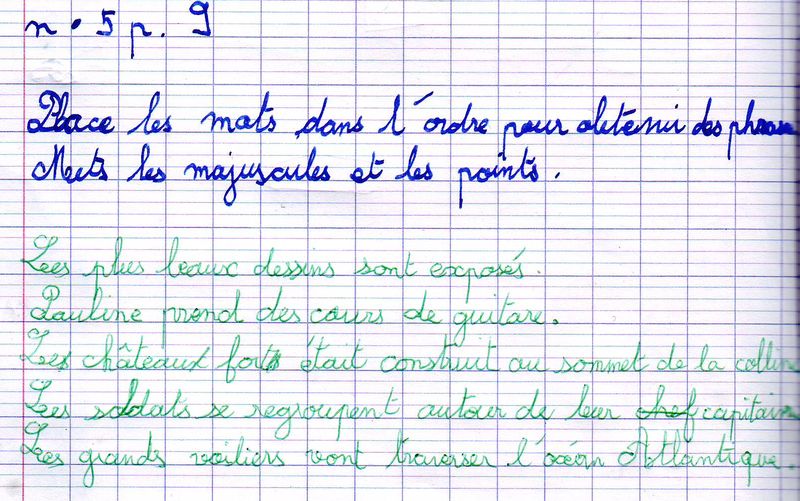 n° 5 p. 9
Place les mots dans l'ordre pour obtenir des phrase
Mets les majuscules et les points.
Les plus beaux dessins sont exposés.
Pauline prend des cours de guitare.
Les châteaux forts était construit au sommet de la colline
Les soldats se regroupent autour de leur chef capitaine
Les grands voiliers vont traverser l'océan Atlantique.